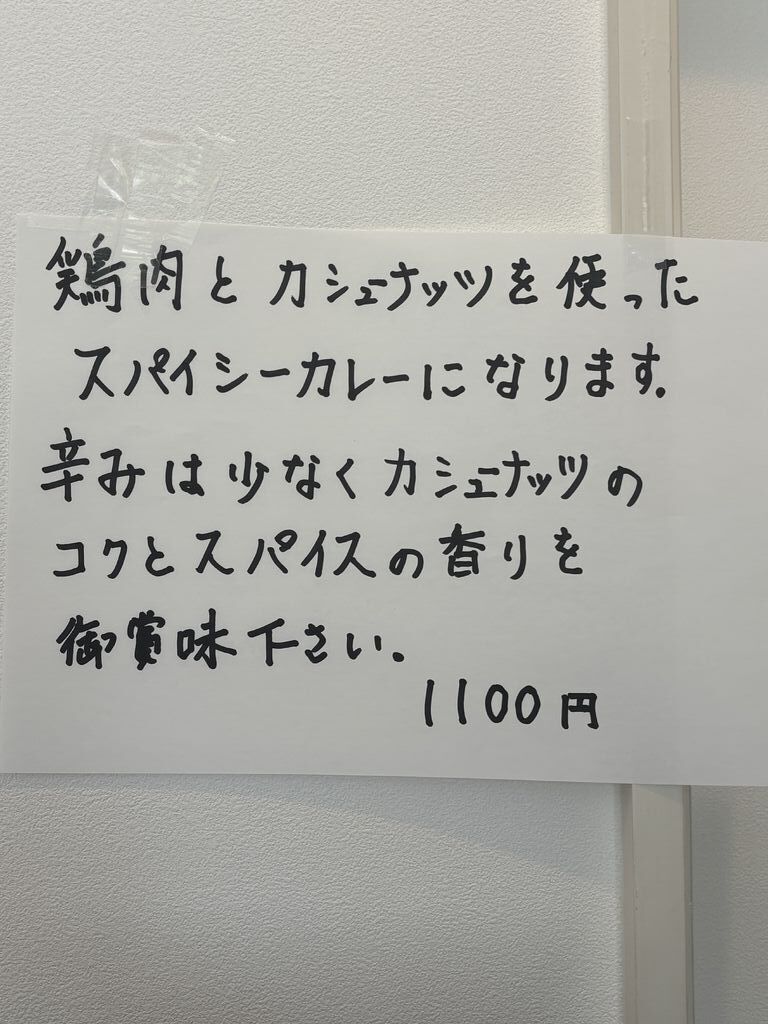 鶏肉とカシューナッツを使った
スパイシーカレーになります。
辛みは少なくカシューナッツの
コクとスパイスの香りを
御賞味下さい。
1100円